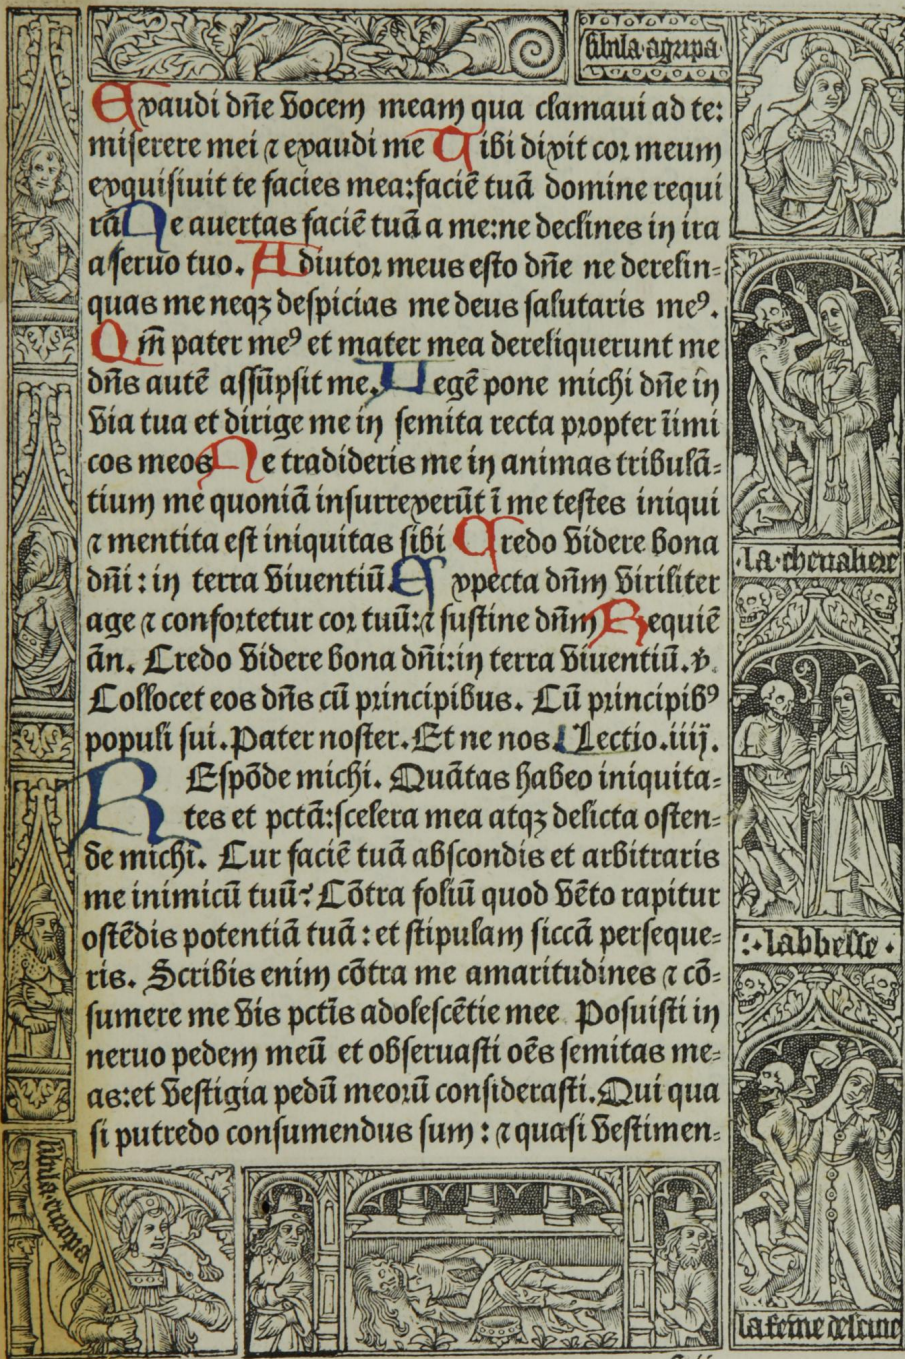 sibila·agripa·
Exaudi dñe vocem meam qua clamaui ad te:
miserere mei ⁊ exaudi me Tibi dixit cor meum
exquisiuit te facies mea: faciē tuā domine requi
rā Ne auertas faciē tuā a me: ne declines in ira
a seruo tuo. Adiutor meus esto dñe ne derelin-
quas me neqꝫ despicias me deus salutaris meꝰ.
Qm̄ pater meꝰ et mater mea dereliquerunt me
dñs autē assūpsit me. Legē pone michi dñe in
via tua et dirige me in semita recta propter īimi
cos meos Ne tradideris me in animas tribulā-
tium me quoniā insurrexerūt ī me testes iniqui
⁊ mentita est iniquitas sibi Credo videre bona
dñi: in terra viuentiū. Expecta dñm viriliter
age ⁊ confortetur cor tuū: ⁊ sustine dñm Requiē
āñ. Credo videre bona dñi: in terra viuentiū. ℣.
Collocet eos dñs cū principibus. Cū principibꝰ
populi sui. Pater noster. Et ne nos. Lectio. iiij.
REspōde michi. Quātas habeo iniquita-
tes et pctā: scelera mea atqꝫ delicta osten-
de michi. Cur faciē tuā abscondis et arbitraris
me inimicū tuū? Cōtra foliū quod vēto rapitur
ostēdis potentiā tuā: et stipulam siccā perseque-
ris. Scribis enim cōtra me amaritudines ⁊ cō-
sumere me vis pctīs adolescētie mee Posuisti in
neruo pedem meū et obseruasti oēs semitas me-
as: et vestigia pedū meorū considerasti. Qui qua
si putredo consumendus sum: ⁊ quasi vestimen-
·la·cheualiere
:·labbesse·
la fēme descuue